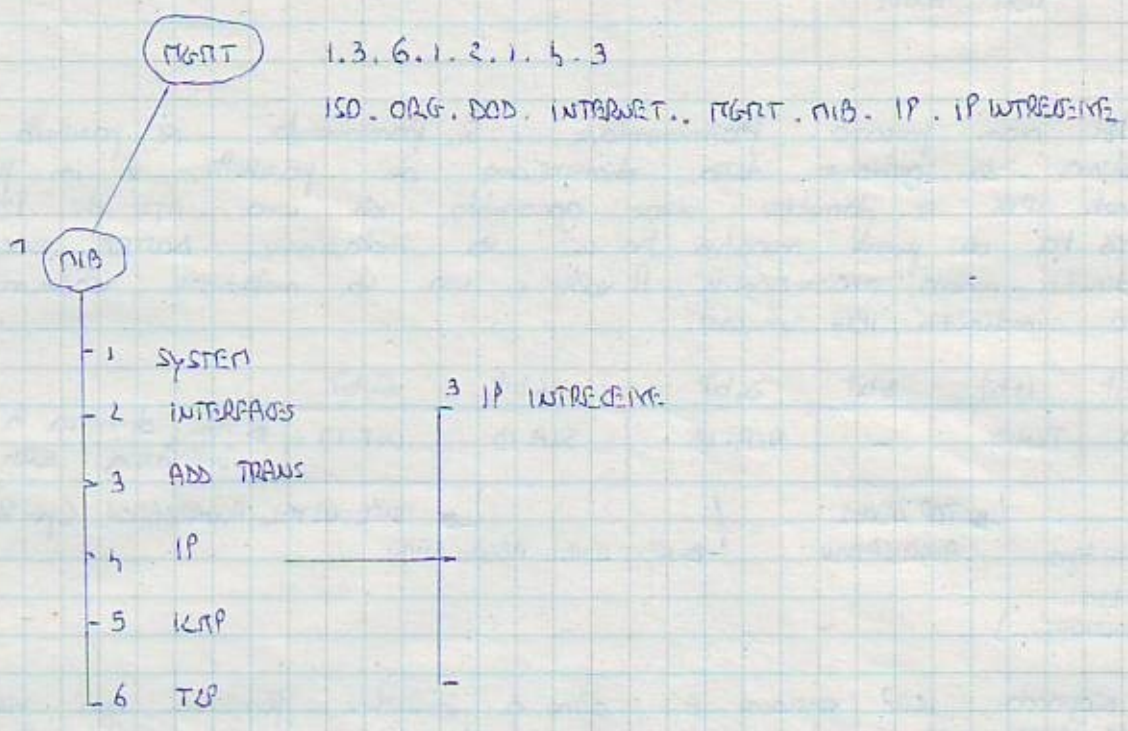 MGMT
1.3.6.1.2.1.4.3
ISO. ORG. DOD. INTERNET.. MGMT. MIB. IP. IP INTRECEIVE
1 MIB
1 SYSTEM
2 INTERFACES
3 ADD TRANS
4 IP
5 ICMP
6 TCP
3 IP INTRECEIVE